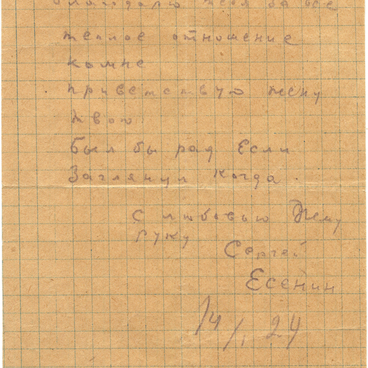 благодарю тебя за все
теплое отношение
комне
приветствую жену
твою
Был бы рад Если
Заглянул Когда.
С любовью Жму
руку
Сергей
Есенин
14/I 24